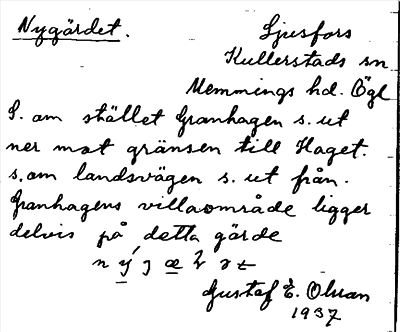 Nygärdet.
Ljusfors
Kullerstads sn
Memmings hd. Ögl
S. om stället Granhagen s. ut
ner mot gränsen till Haget.
s. om landsvägen s. ut från.
Granhagens villaområde ligger
delvis på detta gärde
Gustaf E. Olsson
1937